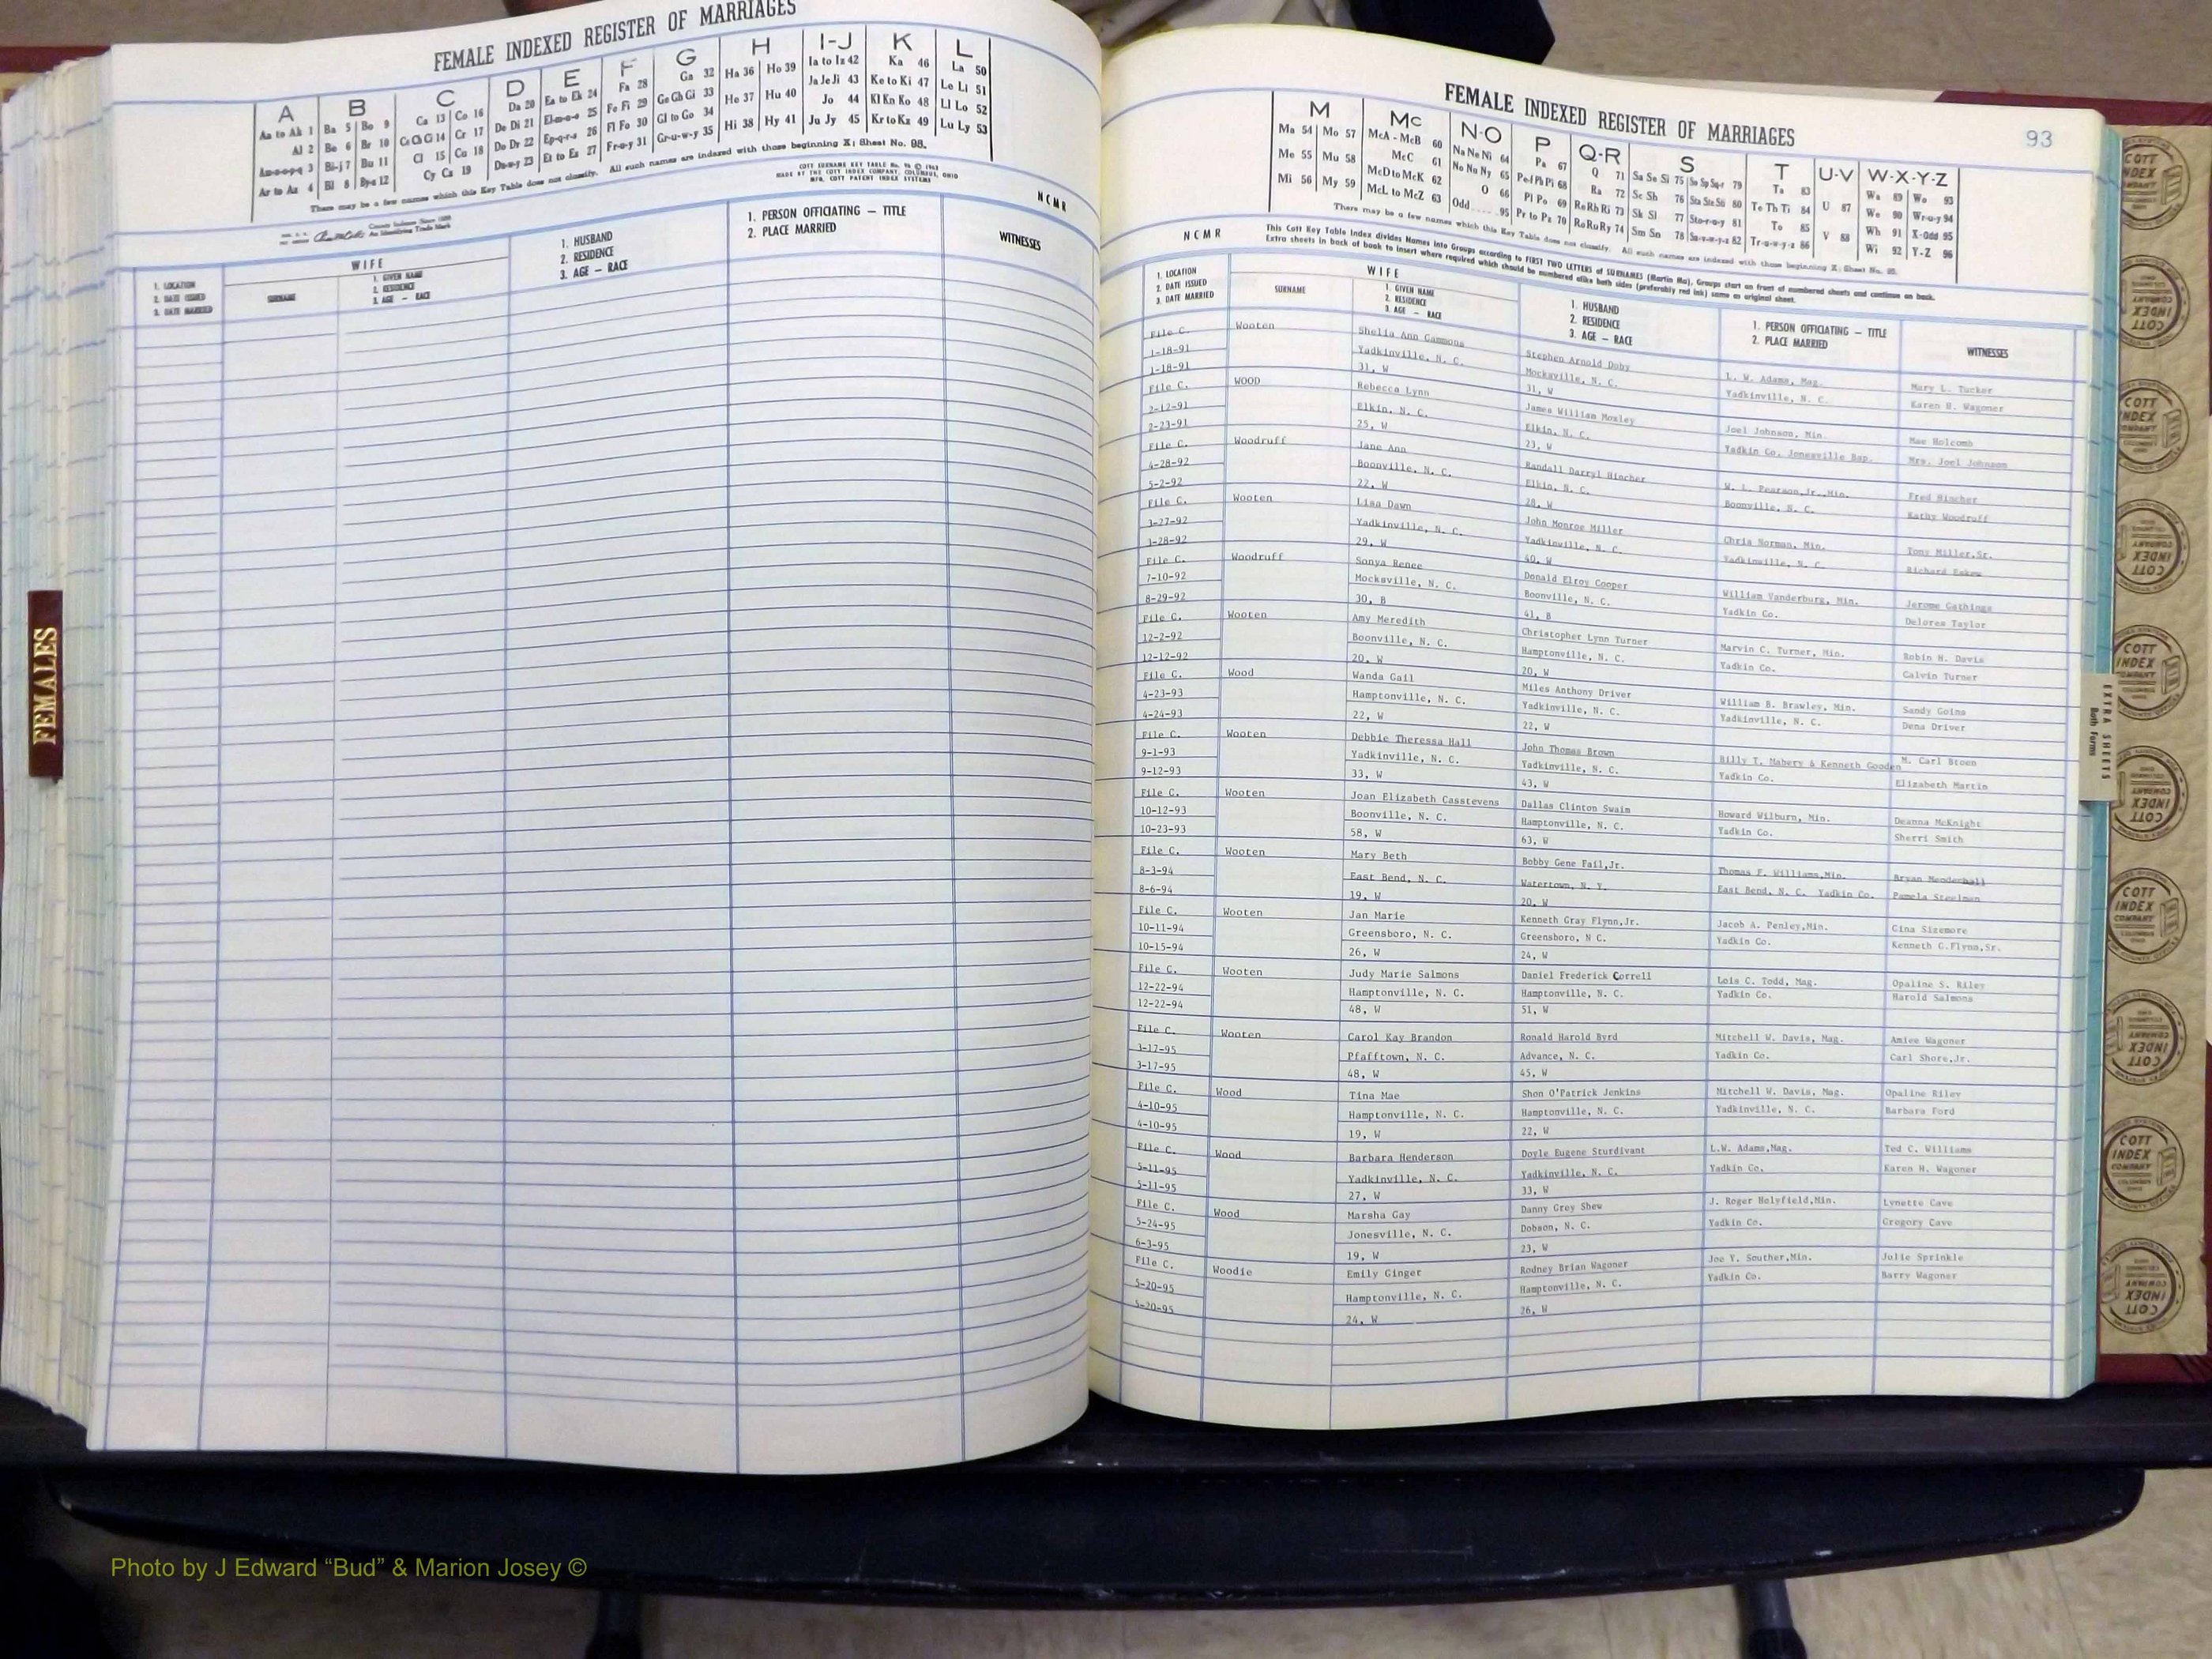 FEMALE INDEXED REGISTER OF MARRIAGES
A B C D E F G H I-J K L
Aa to Ak 1 Ba 5 Bo 9 Ca 13 Co 16 Da 20 Ea to Ek 24 Fa 28 Ga 32 Ha 36 Ho 39 Ia to Iz 42 Ka 46 La 50
Al 2 Be 6 Br 10 Ce Ch Ci 14 Cr 17 De Di 21 El-m-n-o 25 Fe Fi 29 Ge Gh Gi 33 He 37 Hu 40 Ja Je Ji 43 Ke to Ki 47 Le Li 51
Am-n-o-p-q 3 Bi-j 7 Bu 11 Cl 15 Cu 18 Do Dr 22 Ep-q-r-s 26 Fl Fo 30 Gl to Go 34 Hi 38 Hy 41 Jo 44 Kl Kn Ko 48 Ll Lo 52
Ar to Az 4 Bl 8 By-z 12 Cy Cz 19 Du-w-y 23 Et to Ez 27 Fr-u-y 31 Gr-u-w-y 35 Ju Jy 45 Kr to Kz 49 Lu Ly 53
There may be a few names which this Key Table does not classify. All such names are indexed with those beginning X; Sheet No. 95.
COTT SURNAME KEY TABLE
MADE BY THE COTT INDEX COMPANY, COLUMBUS, OHIO
MFR. COTT PATENT INDEX SYSTEMS
County Indexes Since 1888
An Identifying Trade Mark
NCMR
1. LOCATION
2. DATE ISSUED
3. DATE MARRIED
WIFE
SURNAME
1. GIVEN NAME
2. RESIDENCE
3. AGE – RACE
1. HUSBAND
2. RESIDENCE
3. AGE – RACE
1. PERSON OFFICIATING – TITLE
2. PLACE MARRIED
WITNESSES
FEMALES
FEMALE INDEXED REGISTER OF MARRIAGES
93
M Mc N-O P Q-R S T U-V W-X-Y-Z
Ma 54 Mo 57 McA - McB 60 Na Ne Ni 64 Pa 67 Q 71 Sa Se Si 75 So Sp Sq-r 79 Ta 83 U 87 Wa 89 Wo 93
Me 55 Mu 58 McC 61 No Nu Ny 65 Pe-f Ph Pi 68 Ra 72 Sc Sh 76 Sta Ste Sti 80 Te Th Ti 84 V 88 We 90 Wr-u-y 94
Mi 56 My 59 McD to McK 62 O 66 Pl Po 69 Re Rh Ri 73 Sk Sl 77 Sto-r-u-y 81 To 85 Wh 91 X-Odd 95
McL to McZ 63 Odd 95 Pr to Pz 70 Ro Ru Ry 74 Sm Sn 78 Su-v-w-y-z 82 Tr-u-w-y-z 86 Wi 92 Y-Z 96
There may be a few names which this Key Table does not classify. All such names are indexed with those beginning X; Sheet No. 95.
NCMR
This Cott Key Table Index divides Names into Groups according to FIRST TWO LETTERS of SURNAMES (Martin Ma), Groups start on front of numbered sheets and continue on back.
Extra sheets in back of book to insert where required which should be numbered alike both sides (preferably red ink) same as original sheet.
1. LOCATION
2. DATE ISSUED
3. DATE MARRIED
WIFE
SURNAME
1. GIVEN NAME
2. RESIDENCE
3. AGE – RACE
1. HUSBAND
2. RESIDENCE
3. AGE – RACE
1. PERSON OFFICIATING – TITLE
2. PLACE MARRIED
WITNESSES
File C. Wooten Shelia Ann Gammons Stephen Arnold Doby L. W. Adams, Mag. Mary L. Tucker
1-18-91 Yadkinville, N. C. Mocksville, N. C. Yadkinville, N. C. Karen H. Wagoner
1-18-91 31, W 31, W
File C. WOOD Rebecca Lynn James William Moxley Joel Johnson, Min. Mae Holcomb
2-12-91 Elkin, N. C. Elkin, N. C. Yadkin Co. Jonesville Bap. Mrs. Joel Johnson
2-23-91 25, W 23, W
File C. Woodruff Jane Ann Randall Darryl Hincher W. L. Pearson,Jr.,Min. Fred Hincher
4-28-92 Boonville, N. C. Elkin, N. C. Boonville, N. C. Kathy Woodruff
5-2-92 22, W 28, W
File C. Wooten Lisa Dawn John Monroe Miller Chris Norman, Min. Tony Miller,Sr.
3-27-92 Yadkinville, N. C. Yadkinville, N. C. Yadkinville, N. C. Richard Eskew
3-28-92 29, W 40, W
File C. Woodruff Sonya Renee Donald Elroy Cooper William Vanderburg, Min. Jerome Gathings
7-10-92 Mocksville, N. C. Boonville, N. C. Yadkin Co. Delores Taylor
8-29-92 30, B 41, B
File C. Wooten Amy Meredith Christopher Lynn Turner Marvin C. Turner, Min. Robin H. Davis
12-2-92 Boonville, N. C. Hamptonville, N. C. Yadkin Co. Calvin Turner
12-12-92 20, W 20, W
File C. Wood Wanda Gail Miles Anthony Driver William B. Brawley, Min. Sandy Goins
4-23-93 Hamptonville, N. C. Yadkinville, N. C. Yadkinville, N. C. Dena Driver
4-24-93 22, W 22, W
File C. Wooten Debbie Theressa Hall John Thomas Brown Billy T. Mabery & Kenneth Gooden M. Carl Btoen
9-1-93 Yadkinville, N. C. Yadkinville, N. C. Yadkin Co. Elizabeth Martin
9-12-93 33, W 43, W
File C. Wooten Joan Elizabeth Casstevens Dallas Clinton Swaim Howard Wilburn, Min. Deanna McKnight
10-12-93 Boonville, N. C. Hamptonville, N. C. Yadkin Co. Sherri Smith
10-23-93 58, W 63, W
File C. Wooten Mary Beth Bobby Gene Fail,Jr. Thomas F. Williams,Min. Bryan Mendenhall
8-3-94 East Bend, N. C. Watertown, N. Y. East Bend, N. C. Yadkin Co. Pamela Steelman
8-6-94 19, W 20, W
File C. Wooten Jan Marie Kenneth Gray Flynn,Jr. Jacob A. Penley,Min. Gina Sizemore
10-11-94 Greensboro, N. C. Greensboro, N C. Yadkin Co. Kenneth C.Flynn,Sr.
10-15-94 26, W 24, W
File C. Wooten Judy Marie Salmons Daniel Frederick Correll Lois C. Todd, Mag. Opaline S. Riley
12-22-94 Hamptonville, N. C. Hamptonville, N. C. Yadkin Co. Harold Salmons
12-22-94 48, W 51, W
File C. Wooten Carol Kay Brandon Ronald Harold Byrd Mitchell W. Davis, Mag. Amiee Wagoner
3-17-95 Pfafftown, N. C. Advance, N. C. Yadkin Co. Carl Shore,Jr.
3-17-95 48, W 45, W
File C. Wood Tina Mae Shon O'Patrick Jenkins Mitchell W. Davis, Mag. Opaline Riley
4-10-95 Hamptonville, N. C. Hamptonville, N. C. Yadkinville, N. C. Barbara Ford
4-10-95 19, W 22, W
File C. Wood Barbara Henderson Doyle Eugene Sturdivant L.W. Adams,Mag. Ted C. Williams
5-11-95 Yadkinville, N. C. Yadkinville, N. C. Yadkin Co. Karen H. Wagoner
5-11-95 27, W 33, W
File C. Wood Marsha Gay Danny Grey Shew J. Roger Holyfield,Min. Lynette Cave
5-24-95 Jonesville, N. C. Dobson, N. C. Yadkin Co. Gregory Cave
6-3-95 19, W 23, W
File C. Woodie Emily Ginger Rodney Brian Wagoner Joe Y. Souther,Min. Julie Sprinkle
5-20-95 Hamptonville, N. C. Hamptonville, N. C. Yadkin Co. Barry Wagoner
5-20-95 24, W 26, W
EXTRA SHEETS
Both Forms
COTT INDEX COMPANY
Photo by J Edward “Bud” & Marion Josey ©